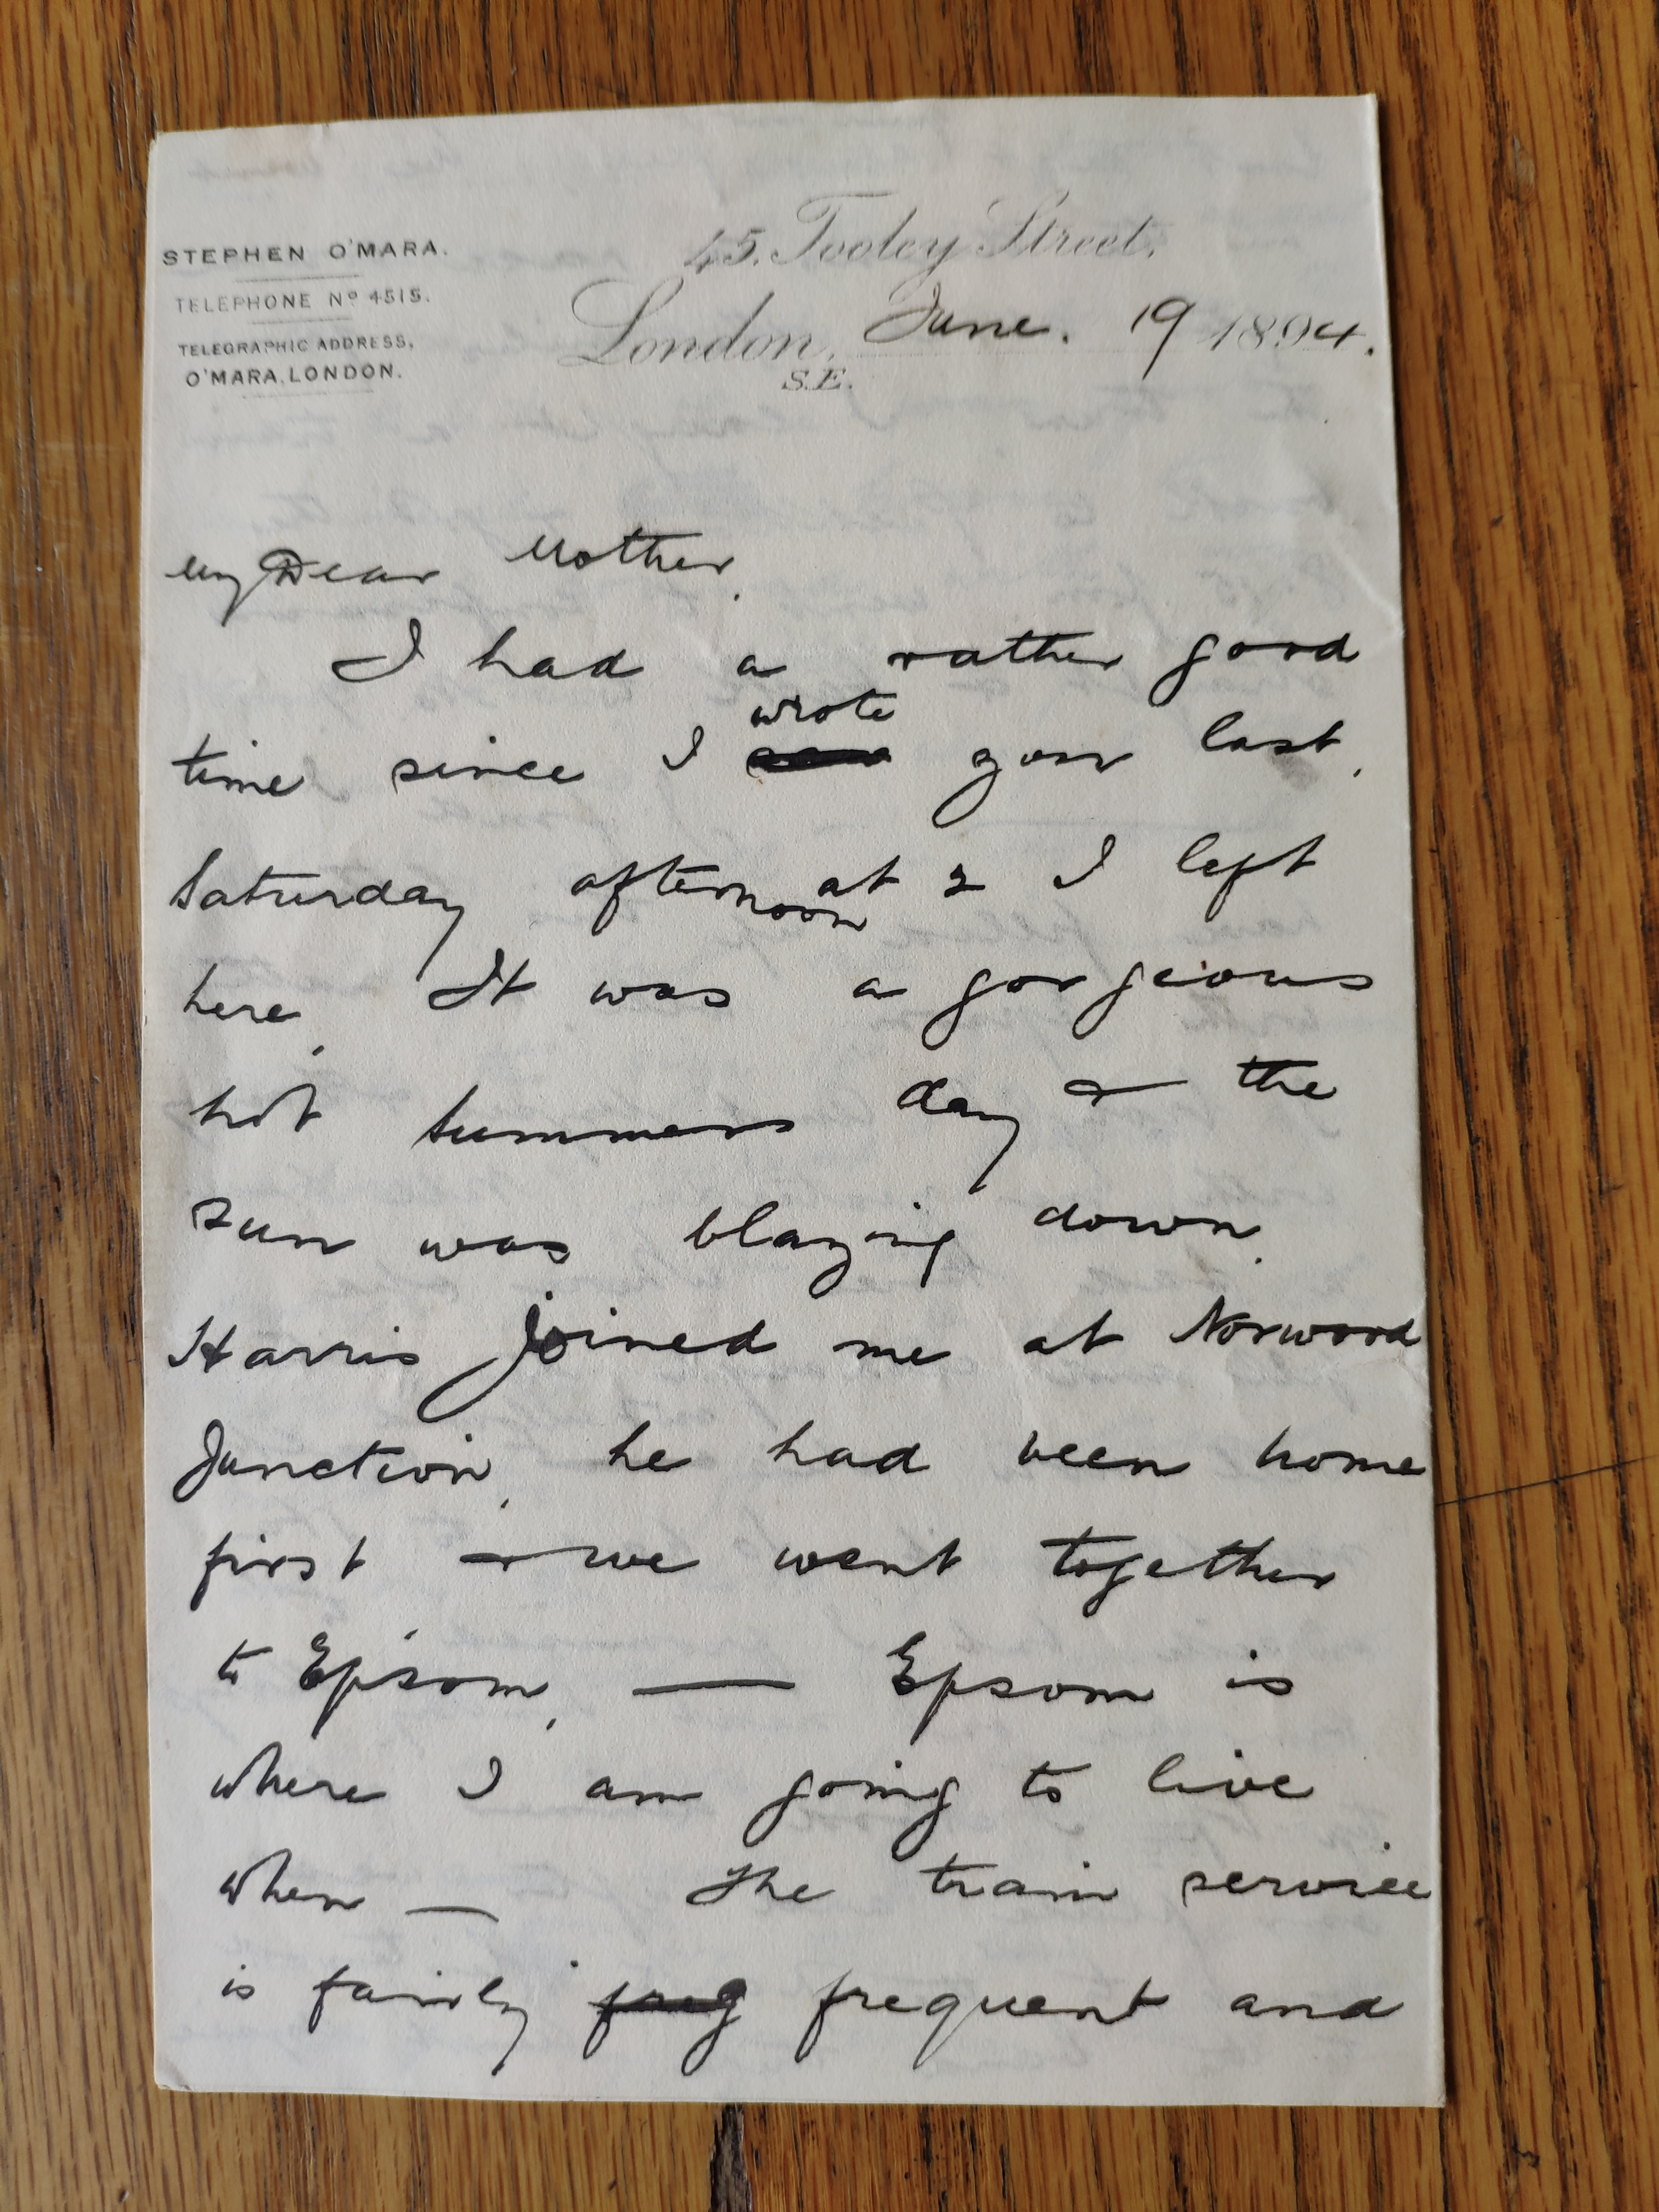 STEPHEN O'MARA.
TELEPHONE Nº 4515.
TELEGRAPHIC ADDRESS,
O'MARA, LONDON.
45, Tooley Street,
London, June. 19 1894.
S.E.
My Dear Mother,
I had a rather good
wrote
time since I you last.
Saturday afternoon at 2 I left
here. It was a gorgeous
hot summers day & the
sun was blazing down.
Harris joined me at Norwood
Junction, he had been home
first & we went together
to Epsom, — Epsom is
where I am going to live
when — The train service
is fairly freq frequent and